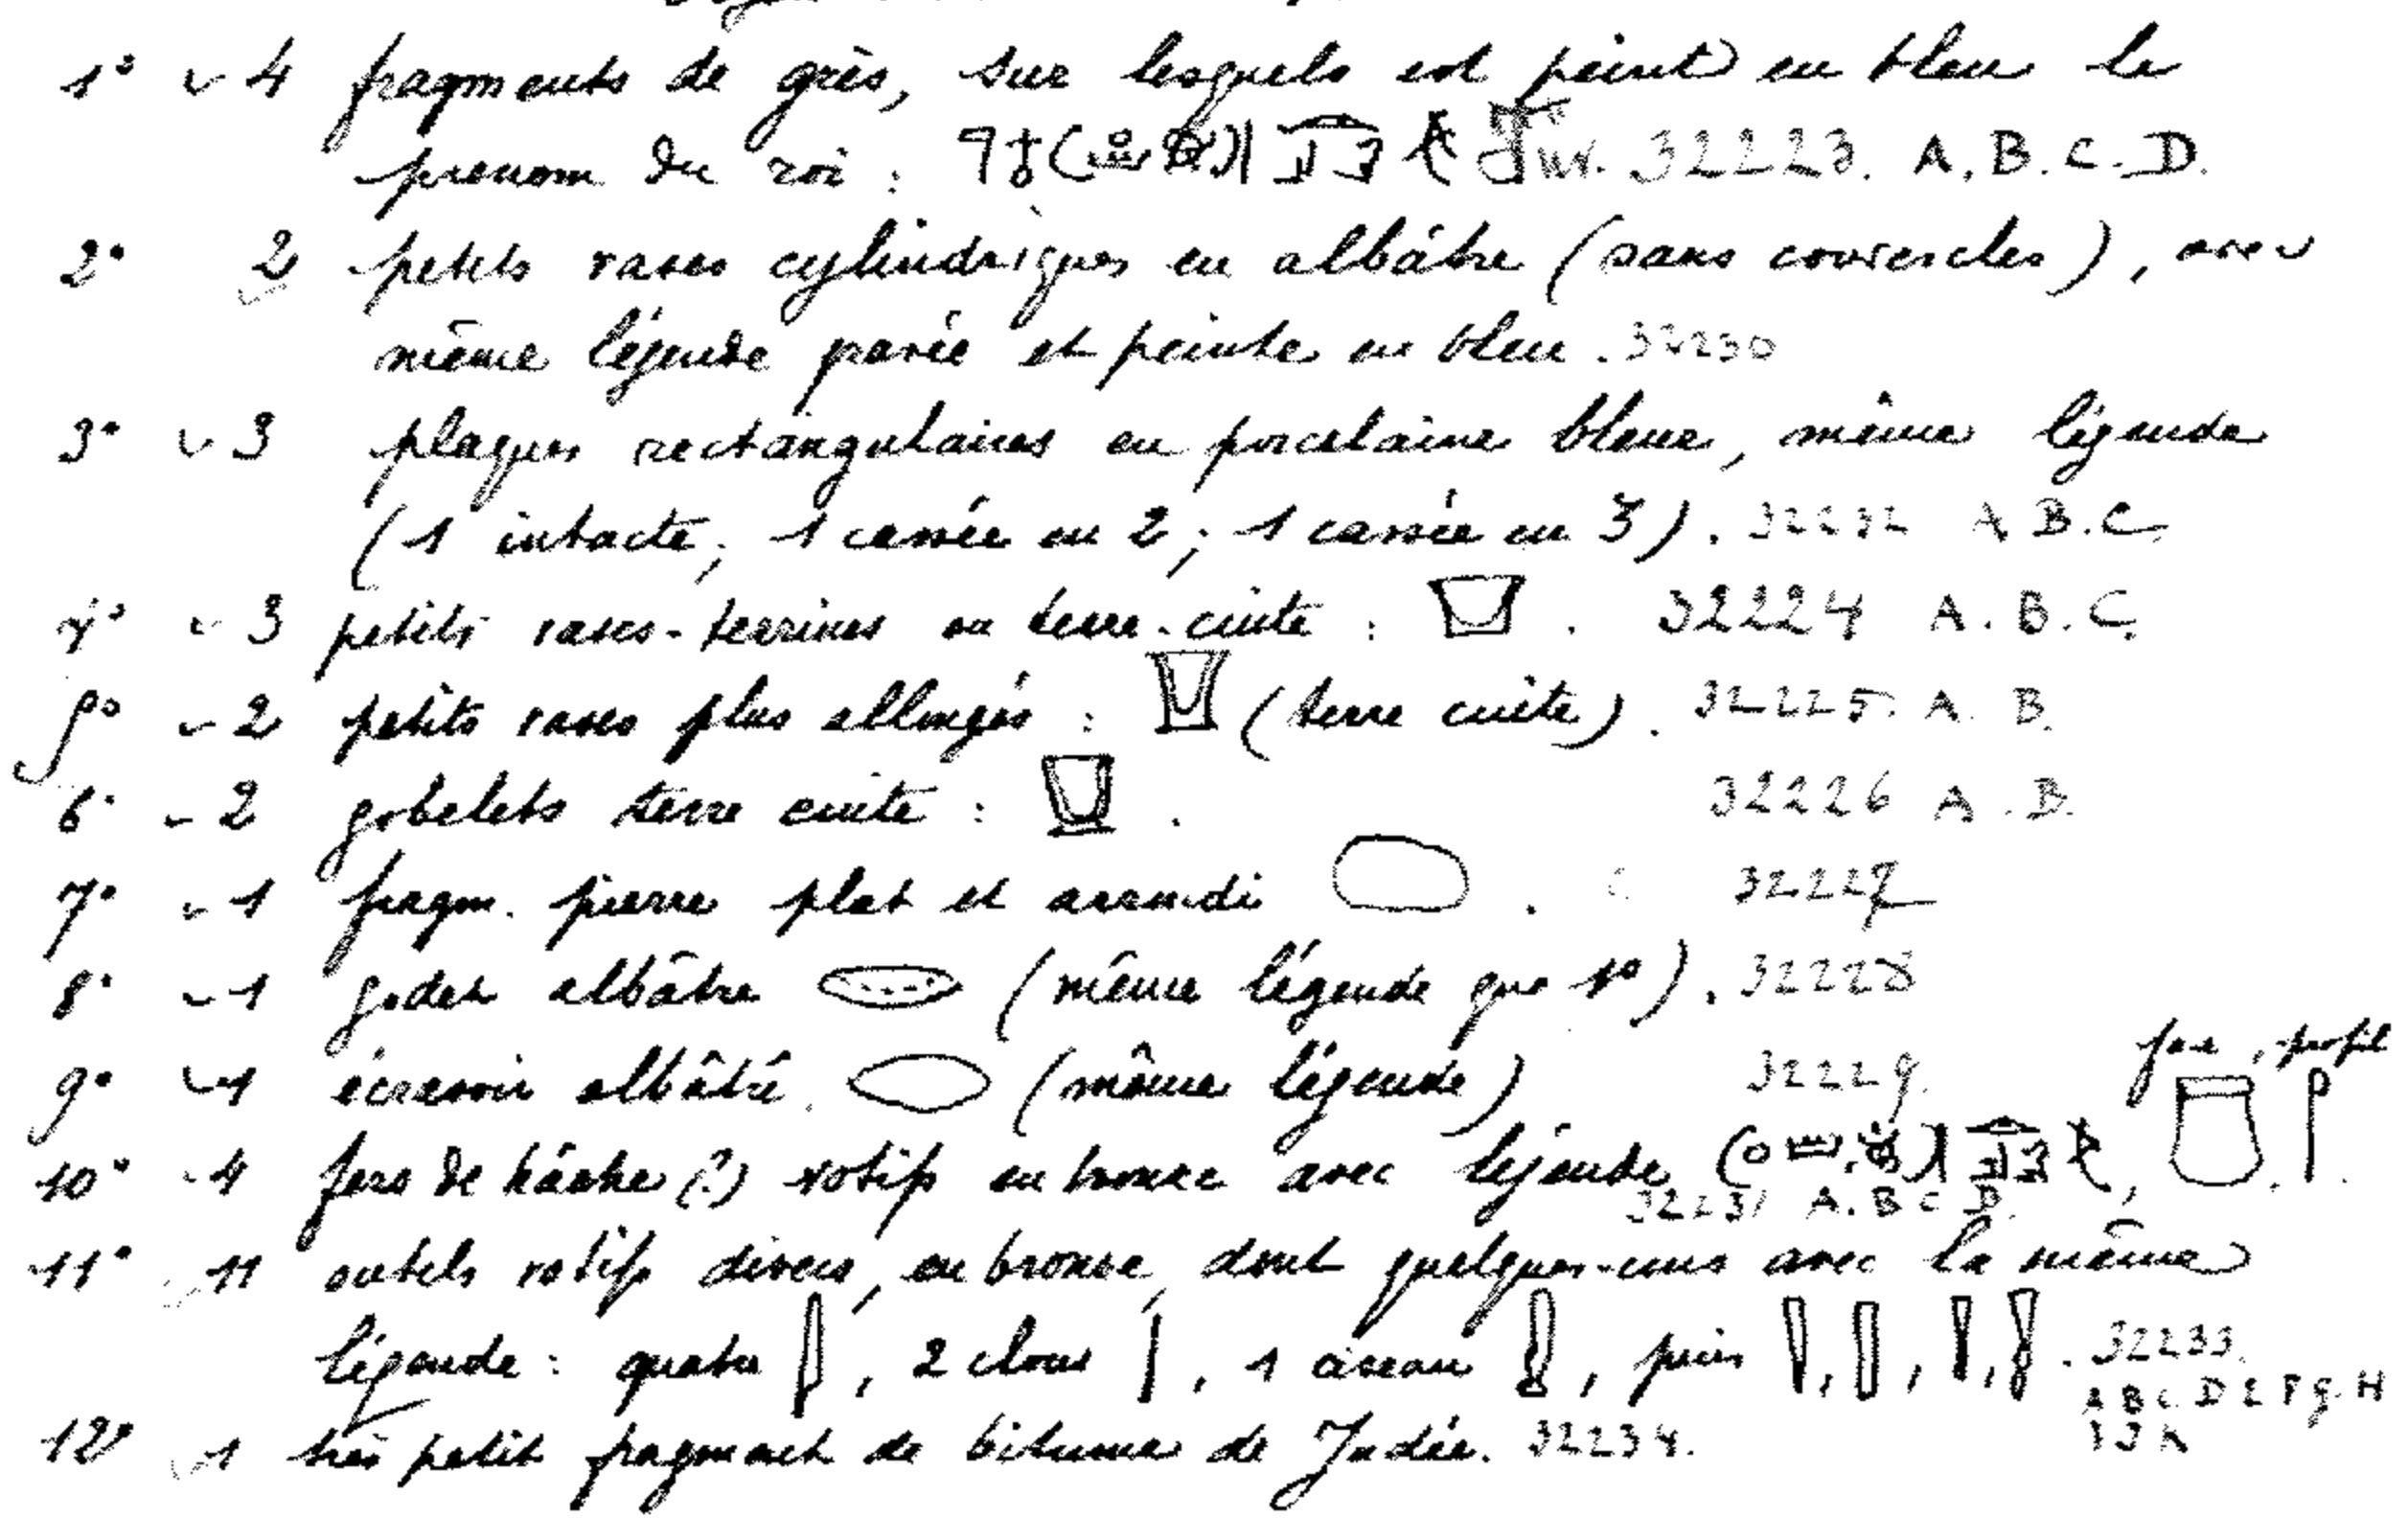 1° 4 fragments de grès, sur lesquels est peint en bleu le
prénom du roi : Inv. 32223. A. B. C. D.
2° 2 petits vases cylindriques en albâtre (sans couvercles), avec
même légende gravée et peinte en bleu. 32230
3° 3 plaques rectangulaires en porcelaine bleue, même légende
(1 intacte, 1 cassée en 2 ; 1 cassée en 3). 32232 A B. C.
4° 3 petits vases-terrines en terre-cuite : . 32224 A. B. C.
5° 2 petits vases plus allongés : (terre cuite). 32225. A. B.
6° 2 gobelets terre cuite : . 32226 A. B.
7° 1 fragm. pierre plat et arrondi . 32227
8° 1 godet albâtre (même légende que 1°). 32228
face, profil
9° 1 écrasoir albâtre. (même légende) 32229.
10° 4 fers de hâche (?) votifs en bronze avec légende , .
32231 A. B C D.
11° 11 outils votifs divers, en bronze, dont quelques-uns avec la même
légende : quatre , 2 clous , 1 ciseau , puis , , , . 32233.
A B C D E F g. H
I J K
12° 1 très petit fragment de bitume de Judée. 32234.